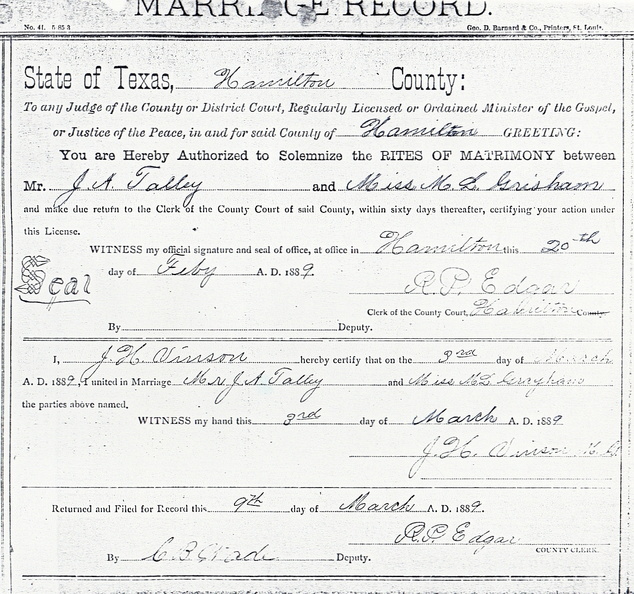 MARRIAGE RECORD.
No. 41. 5 85 3 Geo. D. Barnard & Co., Printers, St. Louis.
State of Texas, Hamilton County:
To any Judge of the County or District Court, Regularly Licensed or Ordained Minister of the Gospel,
or Justice of the Peace, in and for said County of Hamilton GREETING:
You are Hereby Authorized to Solemnize the RITES OF MATRIMONY between
Mr. J. A. Talley and Miss M. L. Grisham
and make due return to the Clerk of the County Court of said County, within sixty days thereafter, certifying your action under
this License.
WITNESS my official signature and seal of office, at office in Hamilton this 20th
Seal
day of Feby A. D. 1889.
R. P. Edgar
Clerk of the County Court, Hamilton County
By Deputy.
I, J. H. Vinson hereby certify that on the 3rd day of March
A. D. 1889, I united in Marriage Mr J. A. Talley and Miss M L
the parties above named.
WITNESS my hand this 3rd day of March A. D. 1889
J. H. Vinson
Returned and Filed for Record this 9th day of March A. D. 1889.
R. P. Edgar
COUNTY CLERK.
By C. B. Deputy.